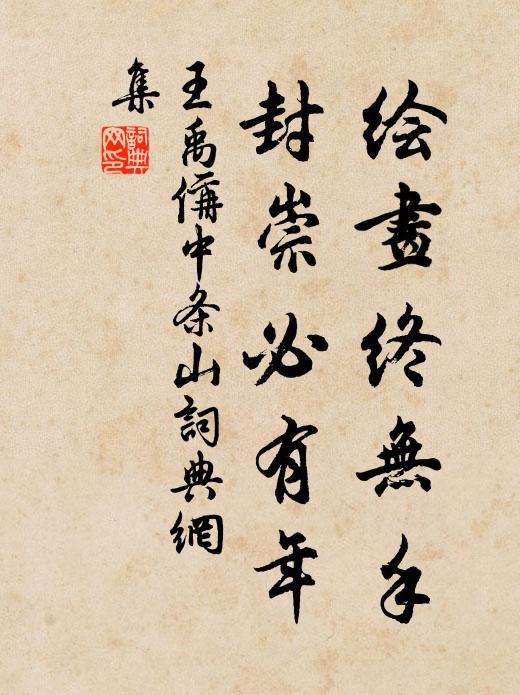 绘畫终無手
封崇必有年
王禹偁中条山詞典網
集
詞典
网印